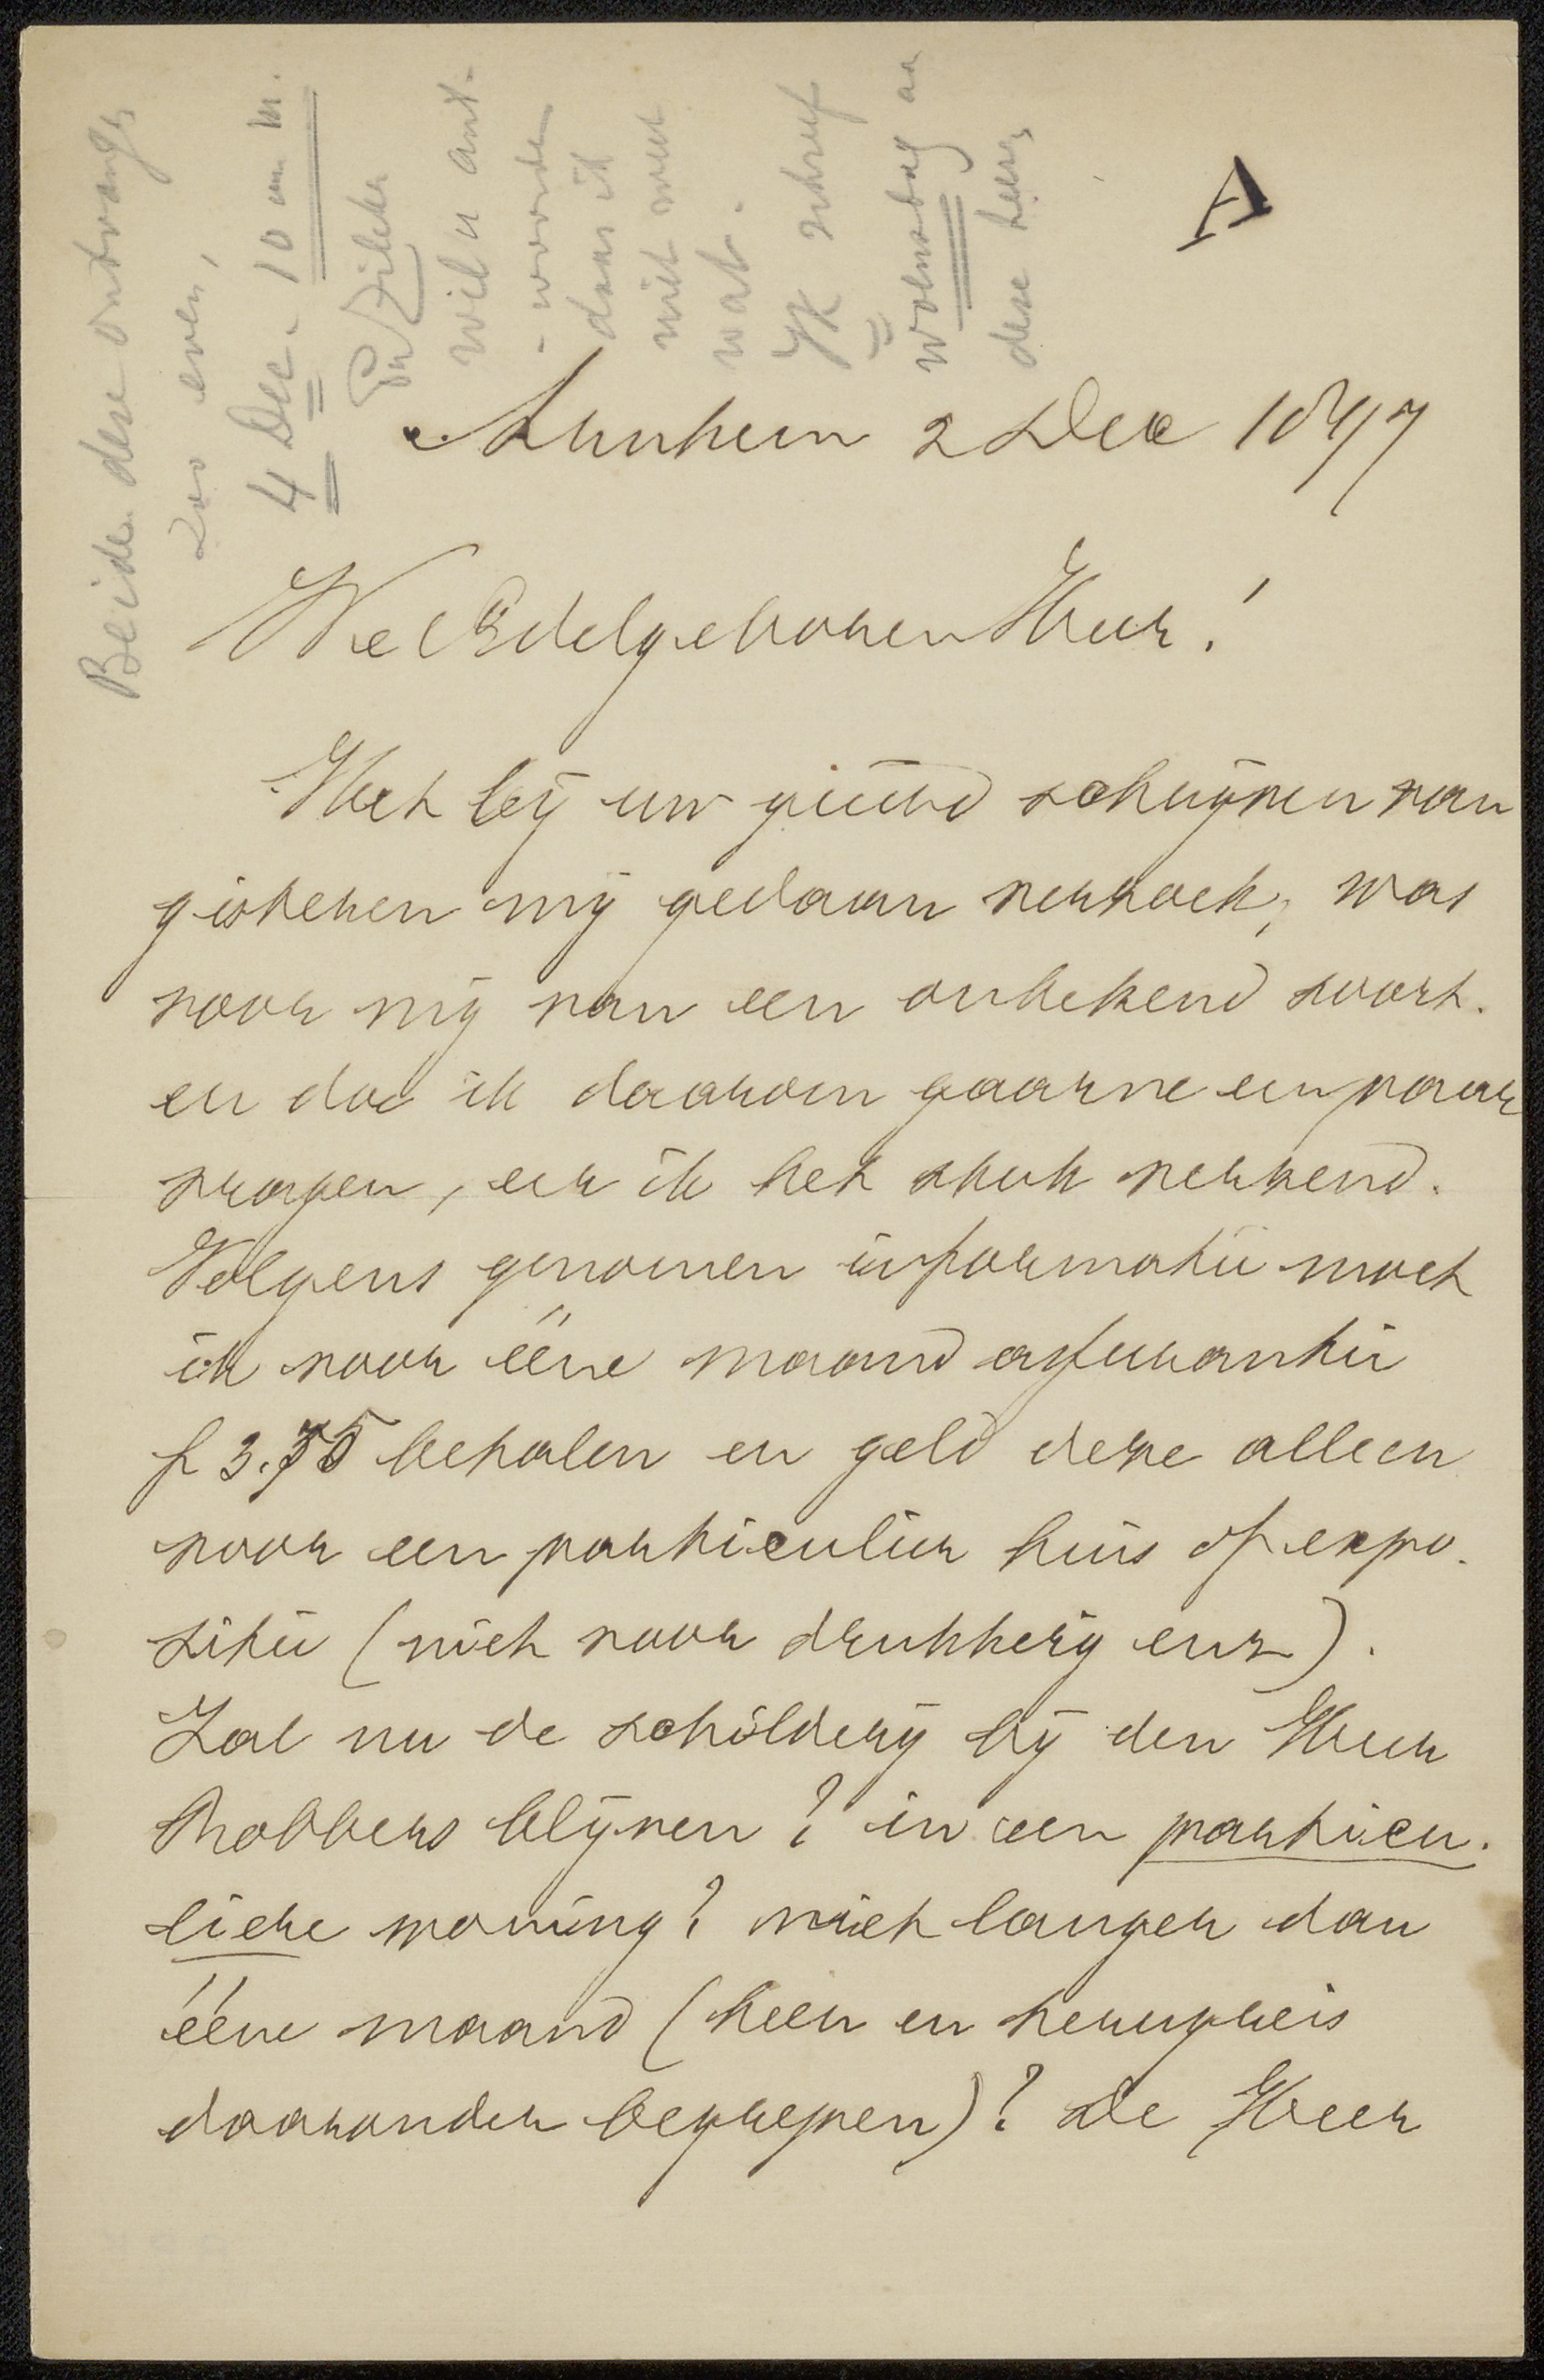 Beide deze ontvangt
zoo even,
4 Dec. 10 um m.
Ph Zilcken
wil u ant-
-woorden
daar ik
niet meer
wat.
Ik schreef
woensdag aa
deze heer
A
Arnhem 2 Dec 1897
WelEdelgeboren Heer!
Het bij uw geëerd schrijven van
gisteren mij gedaan verzoek, was
voor mij van een onbekend soort.
en doe ik daarom gaarne een paar
vragen, eer ik het stuk verzend.
Volgens genomen informatie moet
ik voor ééne maand assurantie
f 3.75 betalen en geld deze alleen
voor een particulier huis of expo-
sitie (niet voor drukkerij enz).
Zal nu de schilderij bij den Heer
Robbers blijven? in een particu-
liere woning? niet langer dan
ééne maand (heen en terugreis
daaronder begrepen)? De Heer